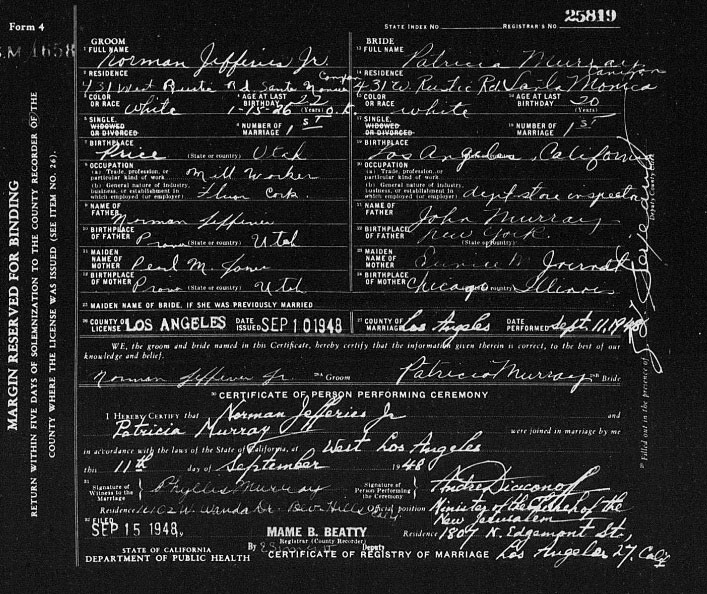 Form 4
25819
STATE INDEX No.
REGISTRAR'S No.
S.M. 1658
MARGIN RESERVED FOR BINDING
RETURN WITHIN FIVE DAYS OF SOLEMNIZATION TO THE COUNTY RECORDER OF THE
COUNTY WHERE THE LICENSE WAS ISSUED (SEE ITEM NO. 26).
GROOM
1 FULL NAME Norman Jefferies Jr.
2 RESIDENCE
431 West Rustic Rd Santa Monica Canyon
3 COLOR OR RACE White
4 AGE AT LAST BIRTHDAY 22 (Years)
1-15-26
5 SINGLE, WIDOWED OR DIVORCED
6 NUMBER OF MARRIAGE 1ST
7 BIRTHPLACE Price (State or country) Utah
8 OCCUPATION
(a) Trade, profession, or particular kind of work Mill Worker
(b) General nature of industry, business, or establishment in which employed (or employer)
9 NAME OF FATHER Norman Jefferies
10 BIRTHPLACE OF FATHER Provo (State or country) Utah
11 MAIDEN NAME OF MOTHER Pearl M. Jones
12 BIRTHPLACE OF MOTHER Provo (State or country) Utah
BRIDE
13 FULL NAME Patricia Murray
14 RESIDENCE
431 W. Rustic Rd. Santa Monica Canyon
15 COLOR OR RACE white
16 AGE AT LAST BIRTHDAY 20 (Years)
17 SINGLE, WIDOWED OR DIVORCED
18 NUMBER OF MARRIAGE 1ST
19 BIRTHPLACE Los Angeles, California (State or country)
20 OCCUPATION
(a) Trade, profession, or particular kind of work
(b) General nature of industry, business, or establishment in which employed (or employer) dept. store inspector
21 NAME OF FATHER John Murray
22 BIRTHPLACE OF FATHER New York
(State or country)
23 MAIDEN NAME OF MOTHER
24 BIRTHPLACE OF MOTHER Chicago (State or country) Illinois
25 MAIDEN NAME OF BRIDE, IF SHE WAS PREVIOUSLY MARRIED
26 COUNTY OF LICENSE LOS ANGELES DATE ISSUED SEP 10 1948
27 COUNTY OF MARRIAGE Los Angeles DATE PERFORMED Sept. 11, 1948
WE, the groom and bride named in this Certificate, hereby certify that the information given therein is correct, to the best of our
knowledge and belief.
Norman Jefferies Jr Groom Patricia Murray Bride
30 CERTIFICATE OF PERSON PERFORMING CEREMONY
I HEREBY CERTIFY that Norman Jefferies Jr and
Patricia Murray were joined in marriage by me
in accordance with the laws of the State of California, at West Los Angeles
this 11th day of September 1948
31 Signature of Witness to the Marriage Phyllis Murray
Signature of Person Performing the Ceremony Andre Diaconoff
Residence W. Wanda Dr. Bev. Hills Caly.
Official position Minister of the Church of the
New Jerusalem
32 FILED
SEP 15 1948
MAME B. BEATTY
Registrar (County Recorder)
By Deputy
Residence 1807 N. Edgemont St.,
Los Angeles 27, Caly
STATE OF CALIFORNIA
DEPARTMENT OF PUBLIC HEALTH
CERTIFICATE OF REGISTRY OF MARRIAGE
Filled out in the presence of
Deputy County Clerk